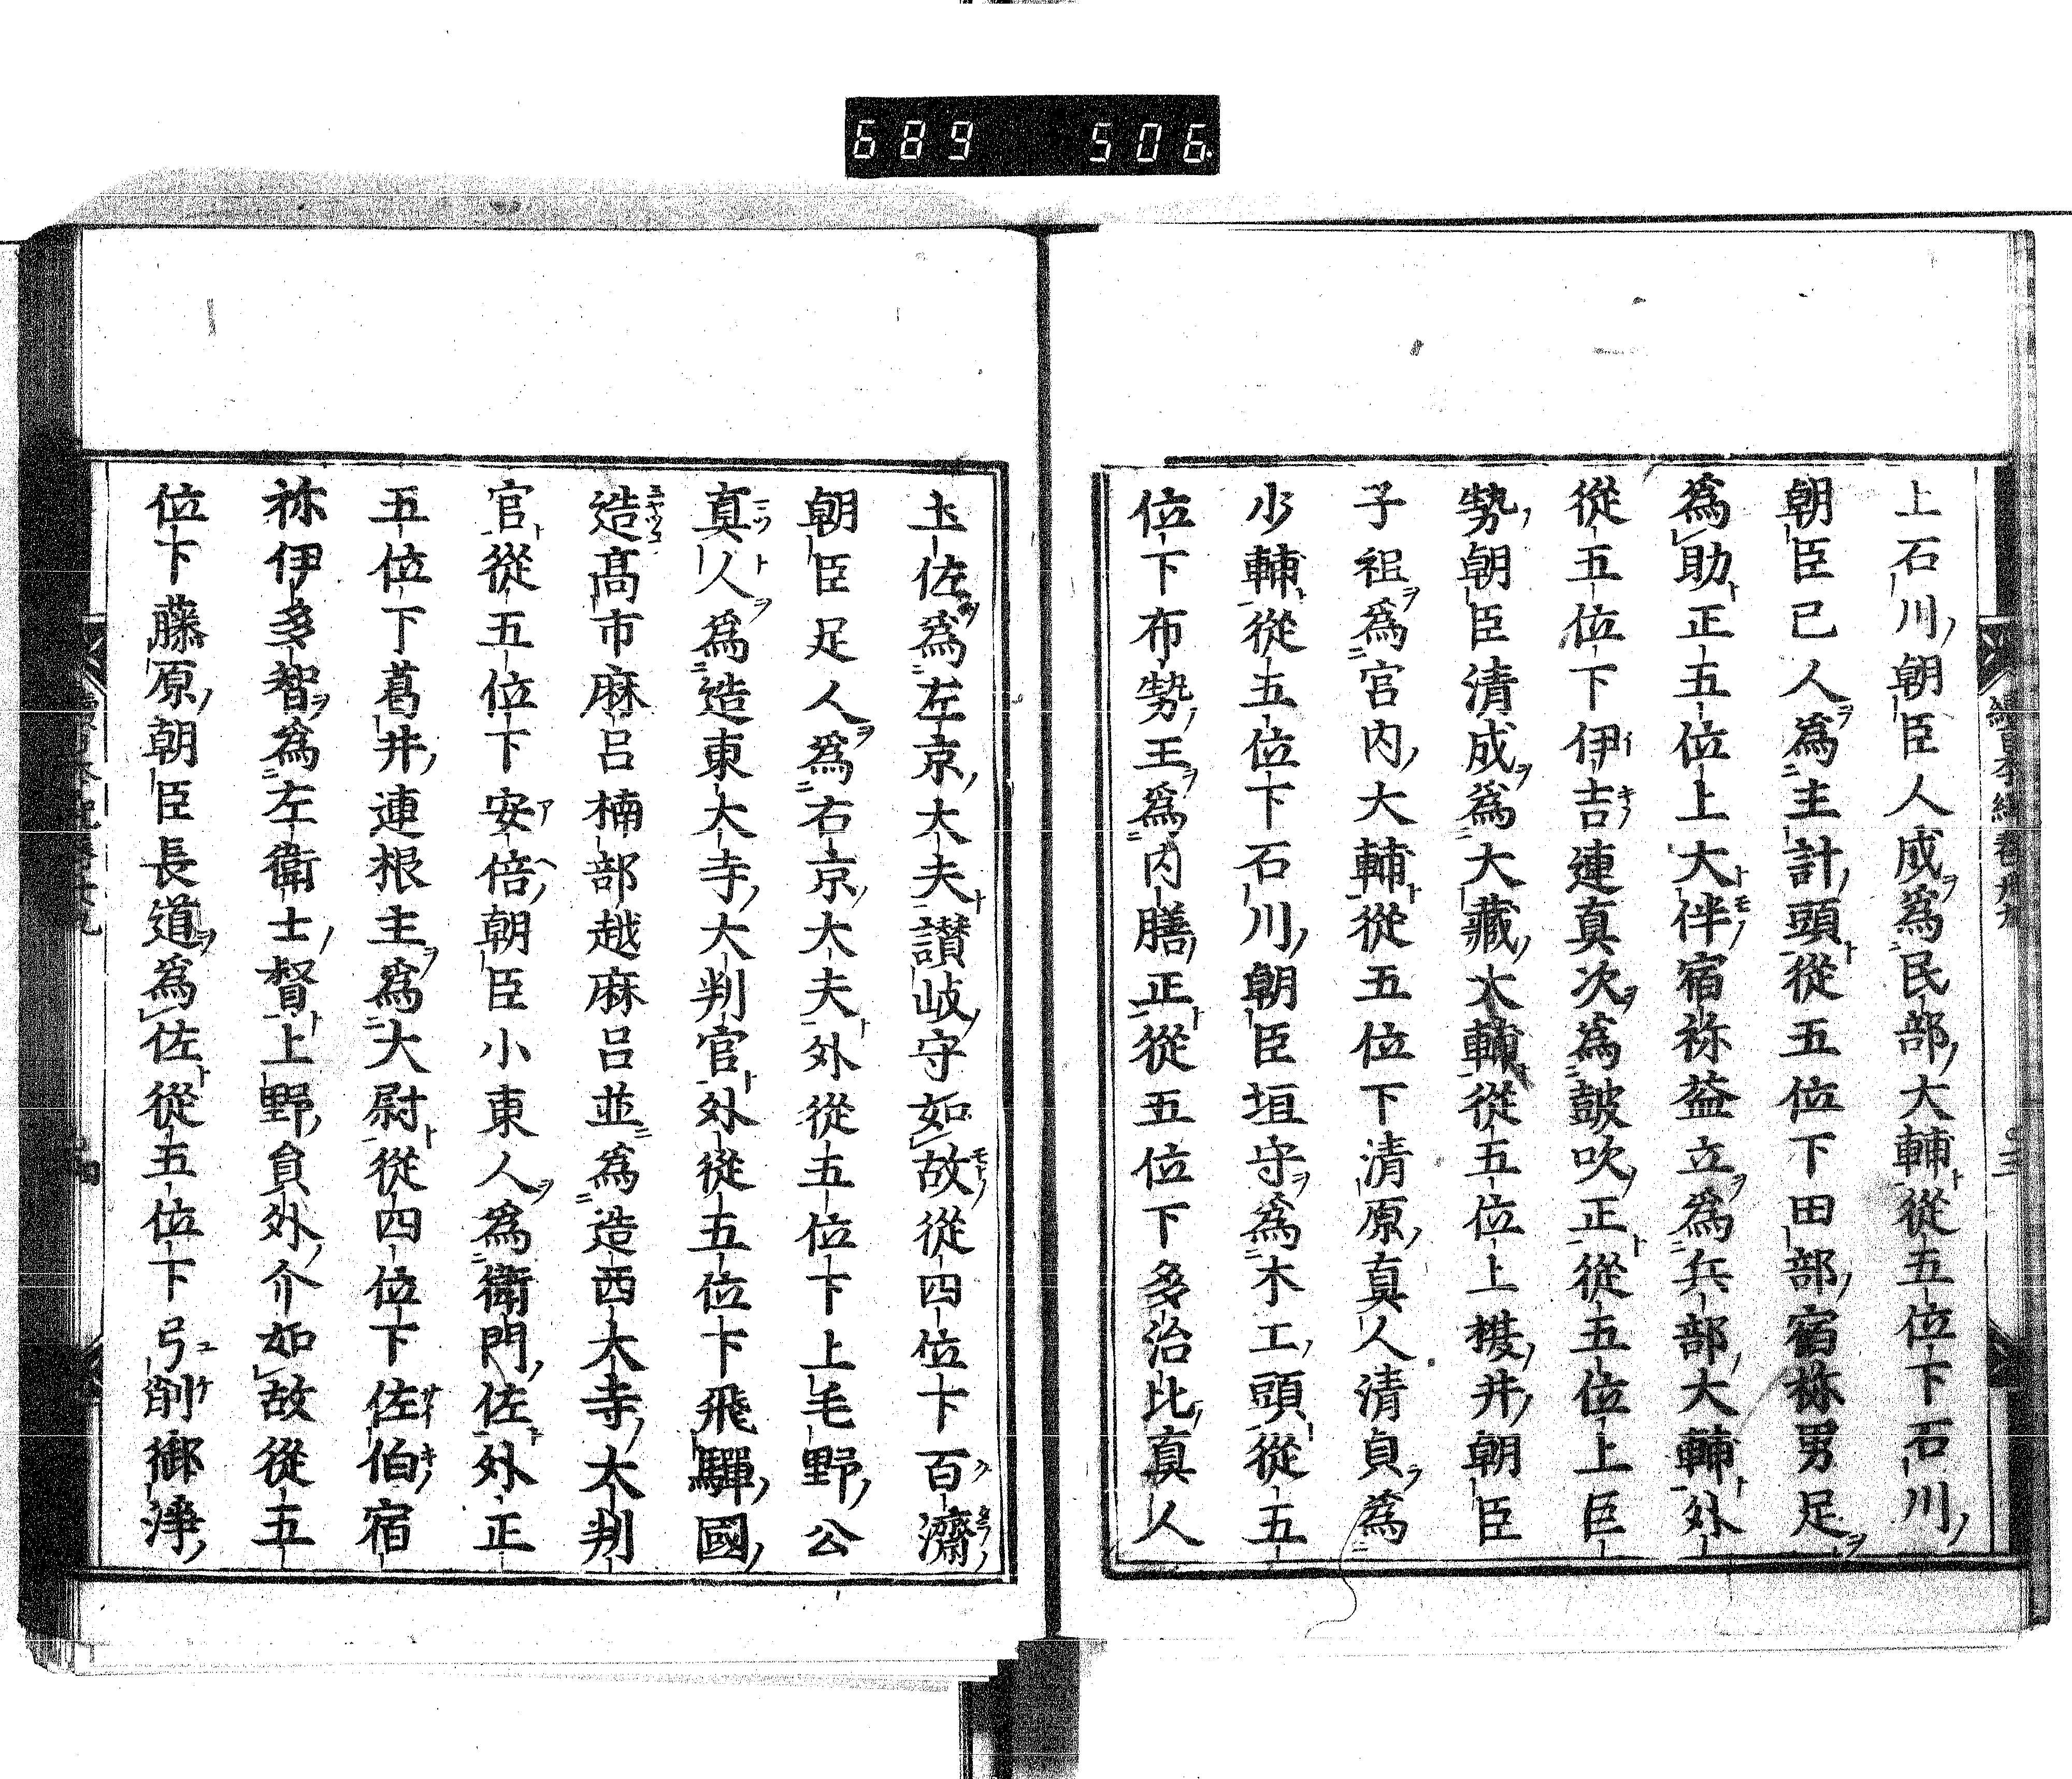 689 506
上石川朝臣人成爲民部大輔從五位下石川
朝臣已人爲主計頭從五位下田部宿祢男足
爲助正五位上大伴宿祢益立爲兵部大輔外
從五位下伊吉連真次爲鼓吹正從五位上巨
勢朝臣清成爲大藏大輔從五位上榎井朝臣
子祖爲宮内大輔從五位下清原真人清貞爲
少輔從五位下石川朝臣垣守爲木工頭從五
位下布勢王爲内膳正從五位下多治比真人
土佐爲左京大夫讃岐守如故從四位下百濟
朝臣足人爲右京大夫外從五位下上毛野公
真人爲造東大寺大判官外從五位下飛驒國
造髙市麻呂楠部越麻呂並爲造西大寺大判
官從五位下安倍朝臣小東人爲衛門佐外正
五位下葛井連根主爲大尉從四位下佐伯宿
祢伊多智爲左衛士督上野員外介如故從五
位下藤原朝臣長道爲佐從五位下弓削御淨